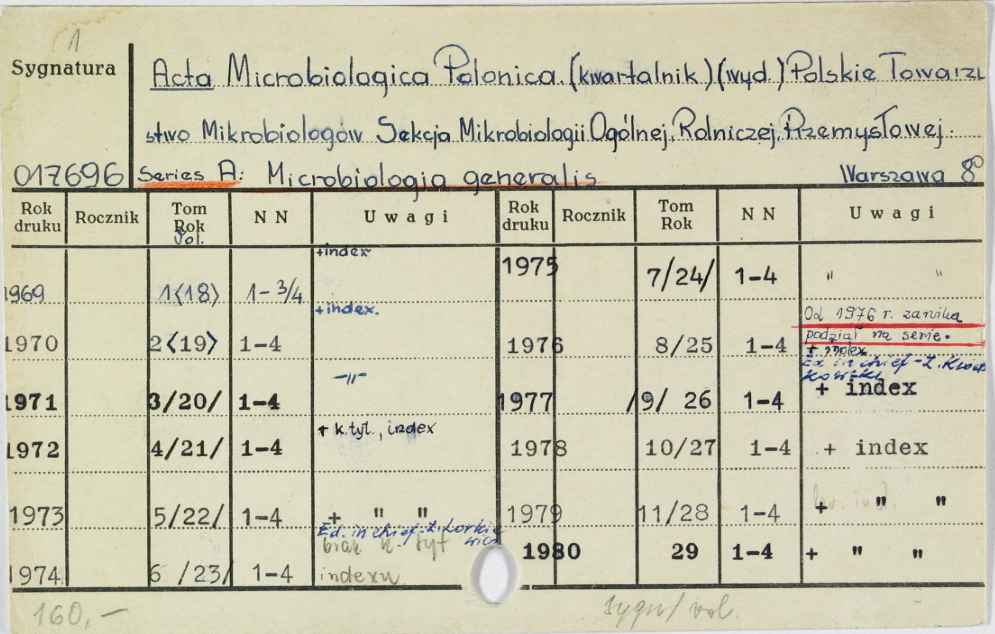 1
Sygnatura
Acta Microbiologica Polonica. (kwartalnik.) (wyd.) Polskie Towarzy
stwo Mikrobiologów Sekcja Mikrobiologii Ogólnej, Rolniczej, Przemysłowej.
017696 Series A: Microbiologia generalis Warszawa 8°
Rok druku Rocznik Tom Rok Vol. NN Uwagi Rok druku Rocznik Tom Rok NN Uwagi
1969 1<18> 1-3/4 +index
1970 2<19> 1-4 +index.
1971 3/20/ 1-4 -"-
1972 4/21/ 1-4 + k.tyt., index
1973 5/22/ 1-4 + " "
Ed. in chief - Z. Lorkiewicz
1974 6 /23/ 1-4 brak k. tyt indexu
1975 7/24/ 1-4 " "
Od 1976 r. zanika
podział na serie.
1976 8/25 1-4 + index
Ed in chief - Z. Kwap
1977 /9/ 26 1-4 + index
1978 10/27 1-4 + index
1979 11/28 1-4 + " "
1980 29 1-4 + " "
160,-
sygn/ vol.